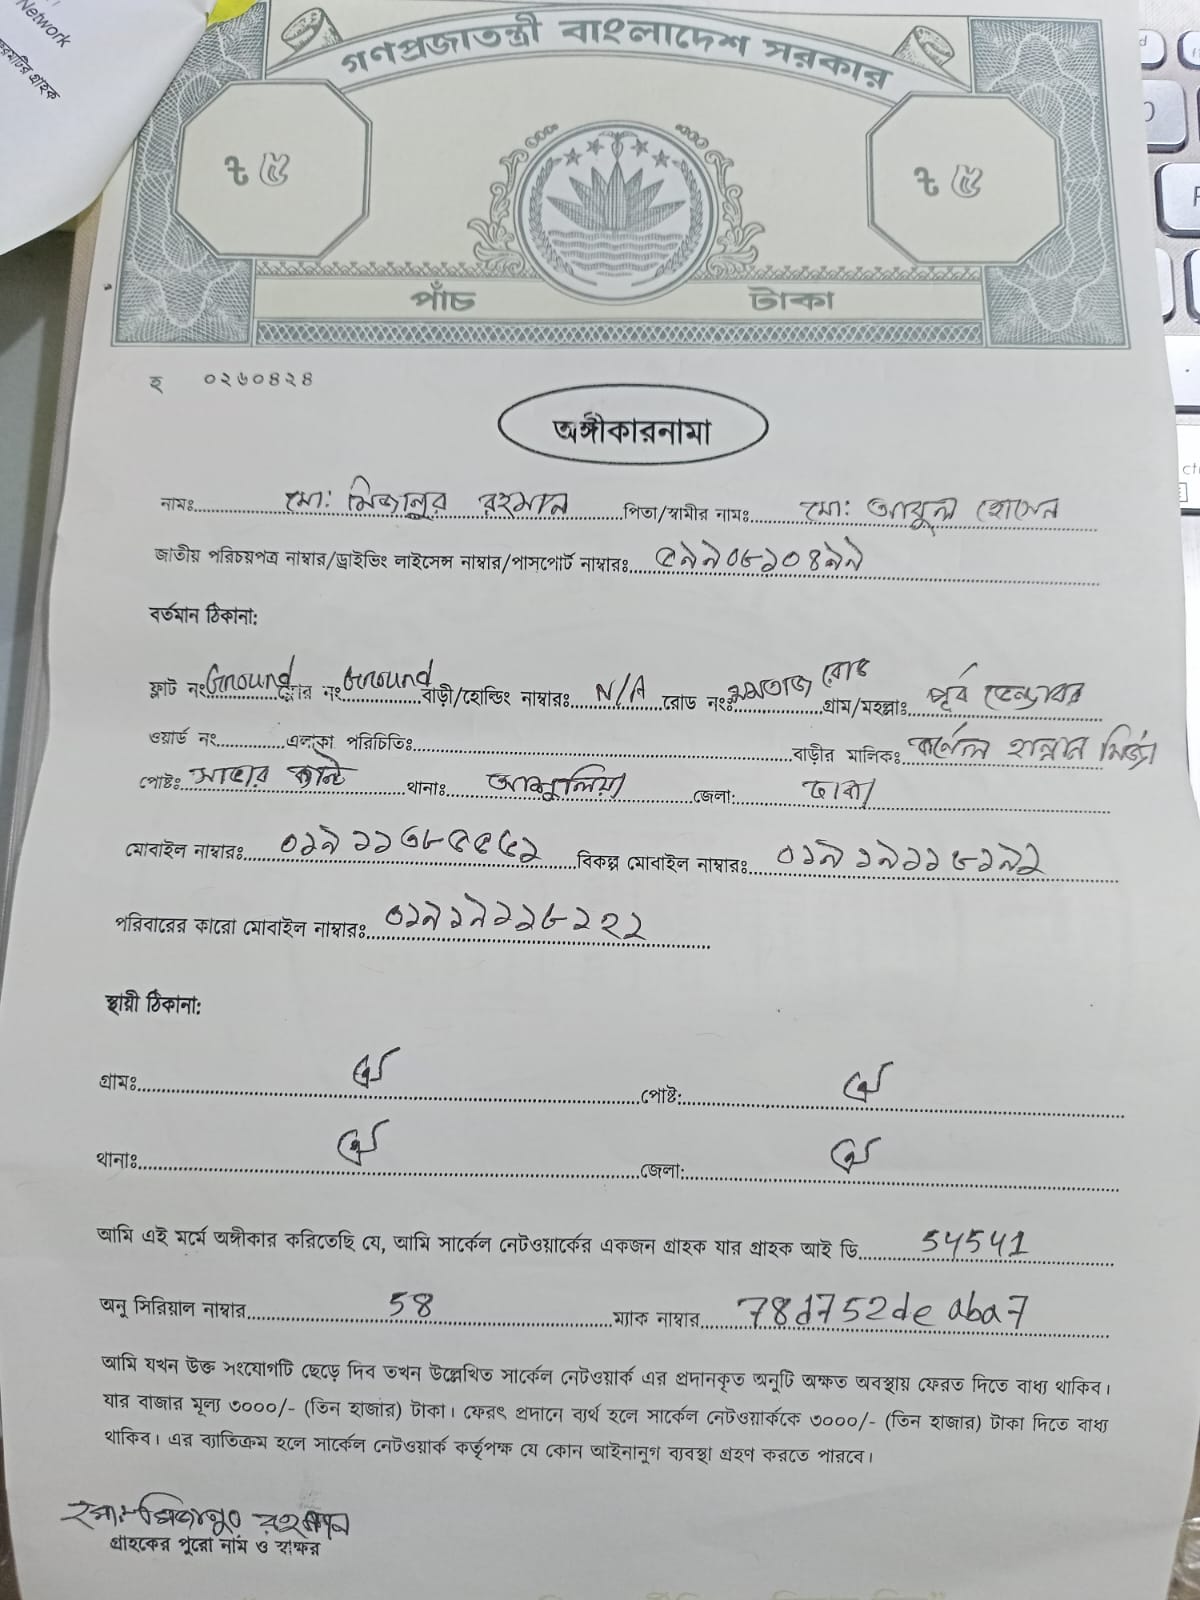 Network
গণপ্রজাতন্ত্রী বাংলাদেশ সরকার
৳ ৫ ৳ ৫
পাঁচ টাকা
হ ০২৬০৪২৪
অঙ্গীকারনামা
নামঃ মো: মিজানুর রহমান পিতা/স্বামীর নামঃ মো: আবুল হোসেন
জাতীয় পরিচয়পত্র নাম্বার/ড্রাইভিং লাইসেন্স নাম্বার/পাসপোর্ট নাম্বারঃ ৫৯৯০৮১০৪৯৯
বর্তমান ঠিকানা:
ফ্লাট নং Ground ফ্লোর নং Ground বাড়ী/হোল্ডিং নাম্বারঃ N/A রোড নংঃ মমতাজ রোড গ্রাম/মহল্লাঃ পূর্ব
ওয়ার্ড নং এলাকা পরিচিতিঃ বাড়ীর মালিকঃ কর্নেল হান্নান মির্জা
পোষ্টঃ সাভার ক্যান্ট থানাঃ আশুলিয়া জেলা: ঢাকা
মোবাইল নাম্বারঃ বিকল্প মোবাইল নাম্বারঃ
পরিবারের কারো মোবাইল নাম্বারঃ
স্থায়ী ঠিকানা:
গ্রামঃ ঐ পোষ্ট: ঐ
থানাঃ ঐ জেলা: ঐ
আমি এই মর্মে অঙ্গীকার করিতেছি যে, আমি সার্কেল নেটওয়ার্কের একজন গ্রাহক যার গ্রাহক আই ডি 54541
অনু সিরিয়াল নাম্বার 58 ম্যাক নাম্বার 78d752de aba7
আমি যখন উক্ত সংযোগটি ছেড়ে দিব তখন উল্লেখিত সার্কেল নেটওয়ার্ক এর প্রদানকৃত অনুটি অক্ষত অবস্থায় ফেরত দিতে বাধ্য থাকিব।
যার বাজার মূল্য ৩০০০/- (তিন হাজার) টাকা। ফেরৎ প্রদানে ব্যর্থ হলে সার্কেল নেটওয়ার্ককে ৩০০০/- (তিন হাজার) টাকা দিতে বাধ্য
থাকিব। এর ব্যতিক্রম হলে সার্কেল নেটওয়ার্ক কর্তৃপক্ষ যে কোন আইনানুগ ব্যবস্থা গ্রহণ করতে পারবে।
মোঃ মিজানুর রহমান
গ্রাহকের পুরো নাম ও স্বাক্ষর